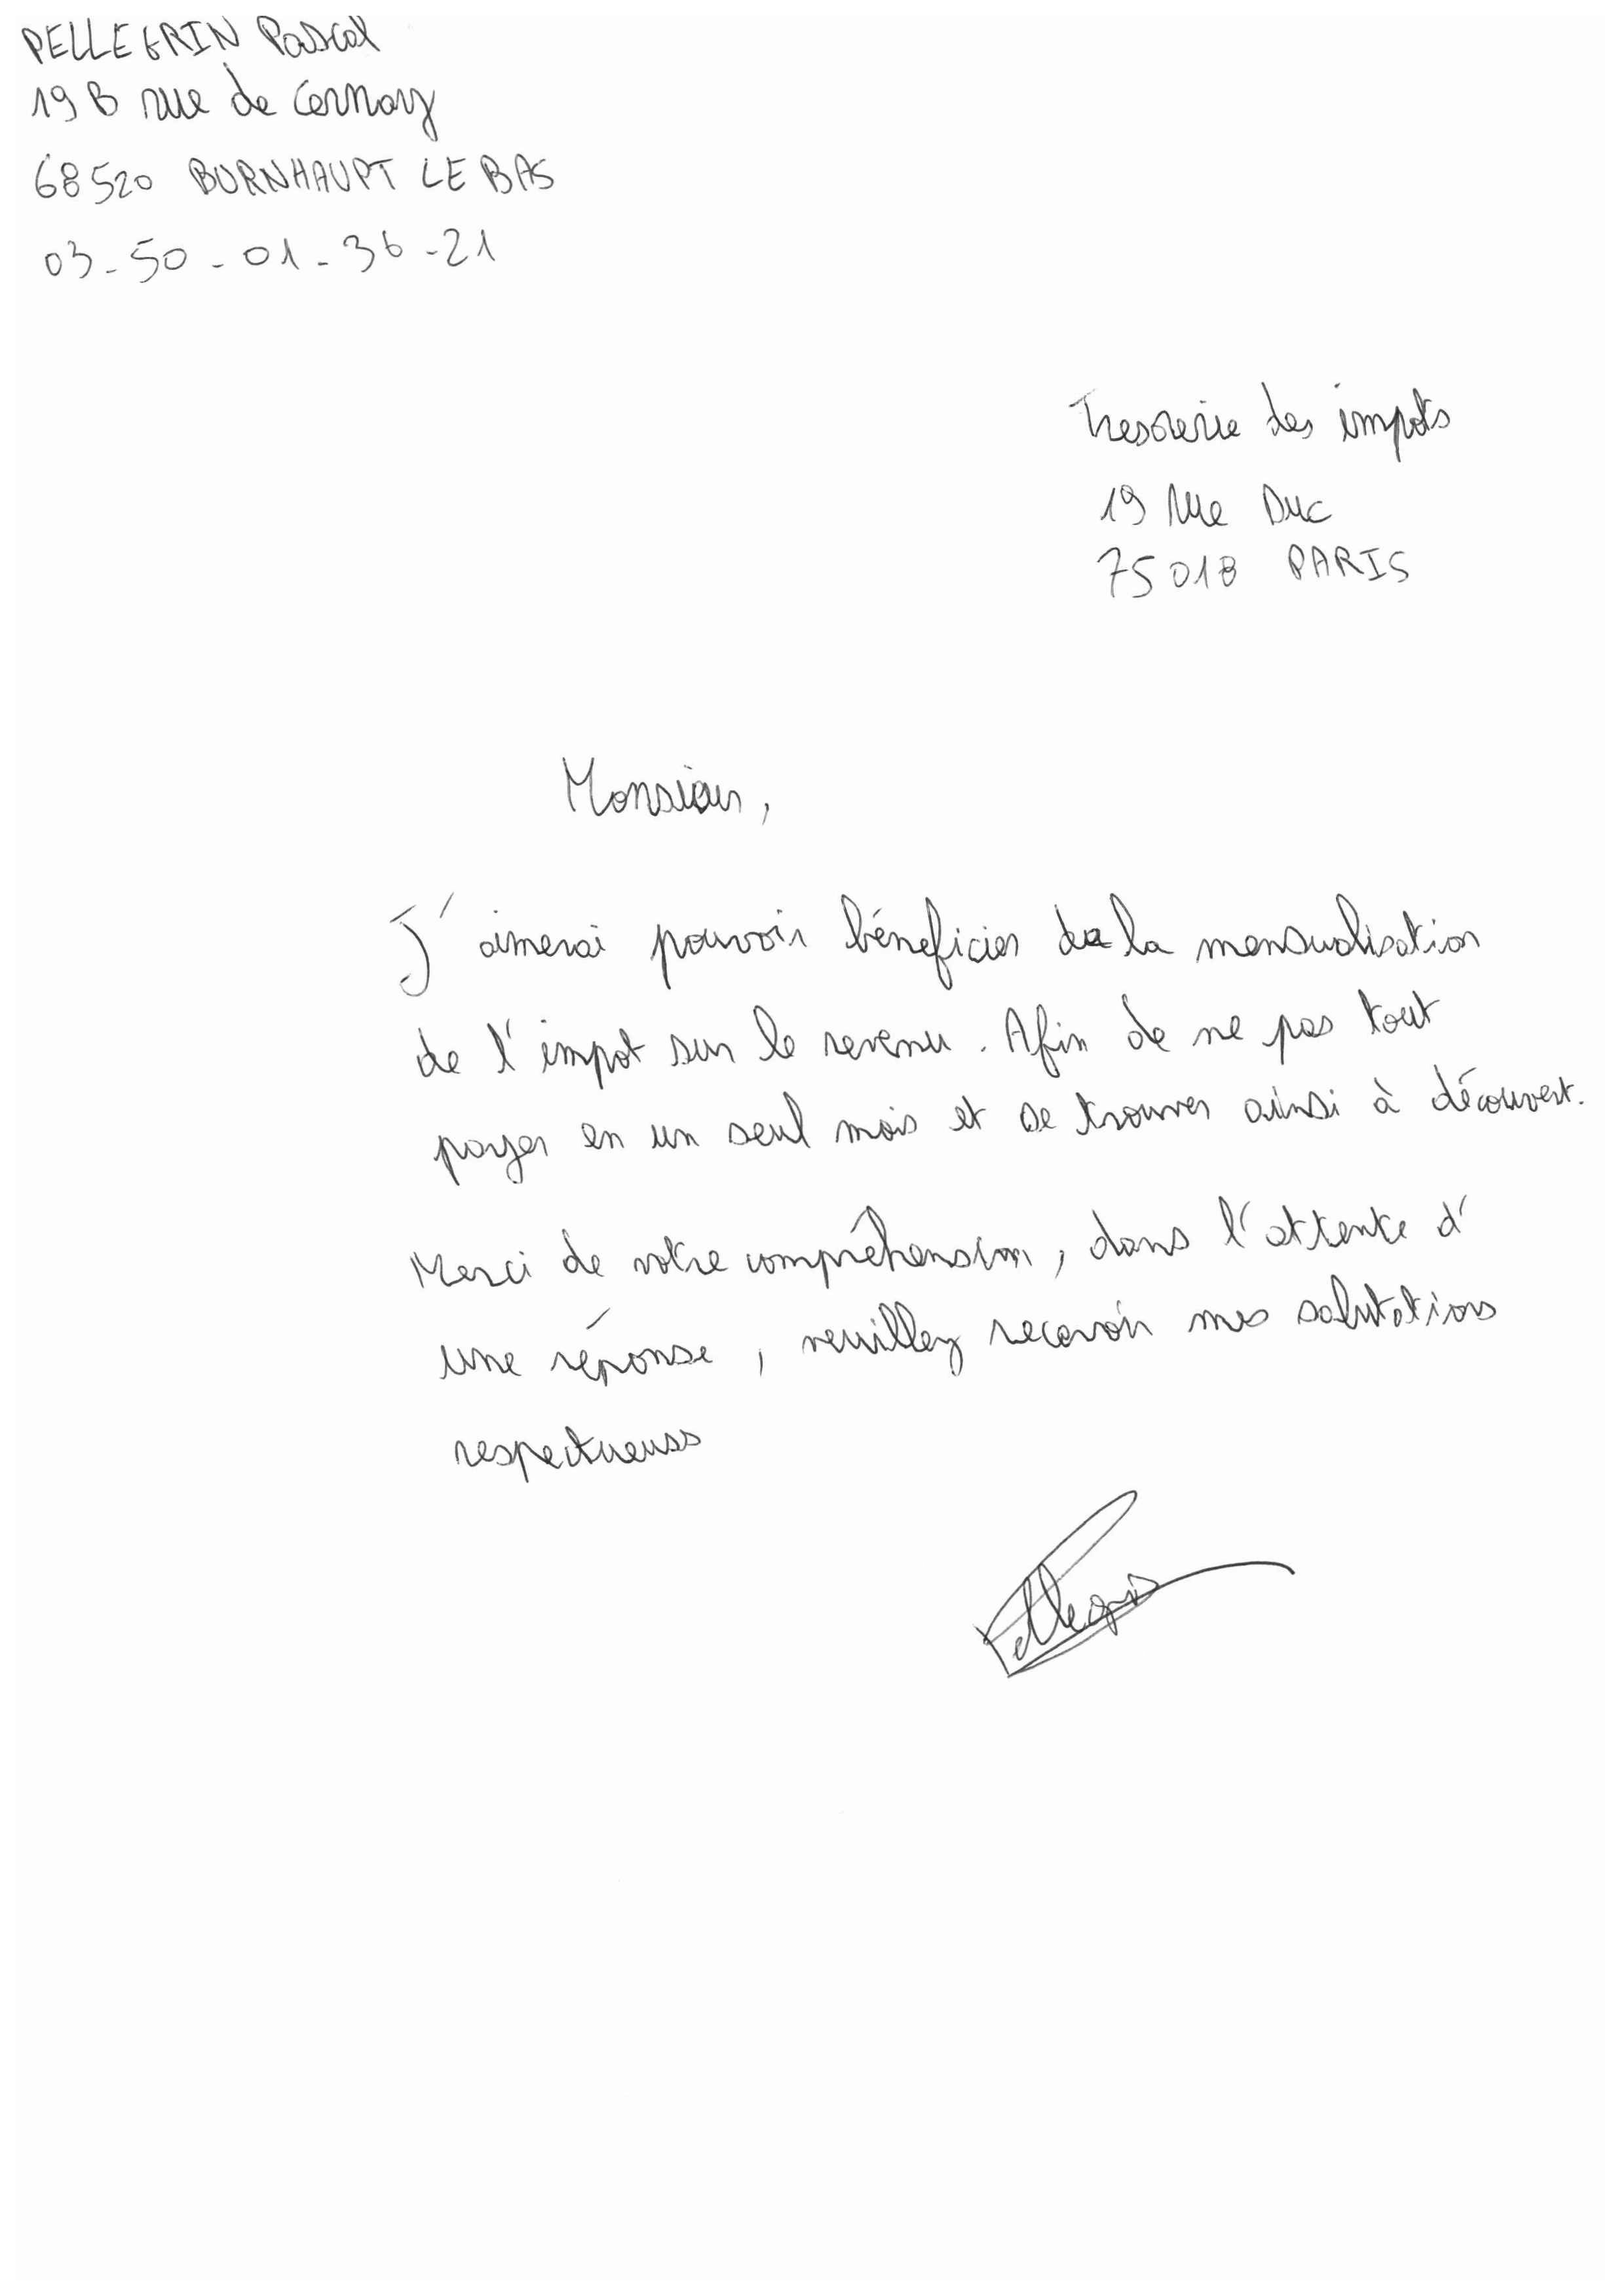 PELLEGRIN Pascal
19 B rue de Cernay
68520 BURNHAUPT LE BAS
03-50-01-36-21
Tresorerie des impots
19 Rue Duc
75018 PARIS
Monsieur,
J'aimerai pouvoir bénéficier de la mensualisation
de l'impot sur le revenu. Afin de ne pas tout
payer en un seul mois et se trouver ainsi à découvert.
Merci de votre compréhension, dans l'attente d'
une réponse, veuillez recevoir mes salutations
respectueuses
Pellegrin